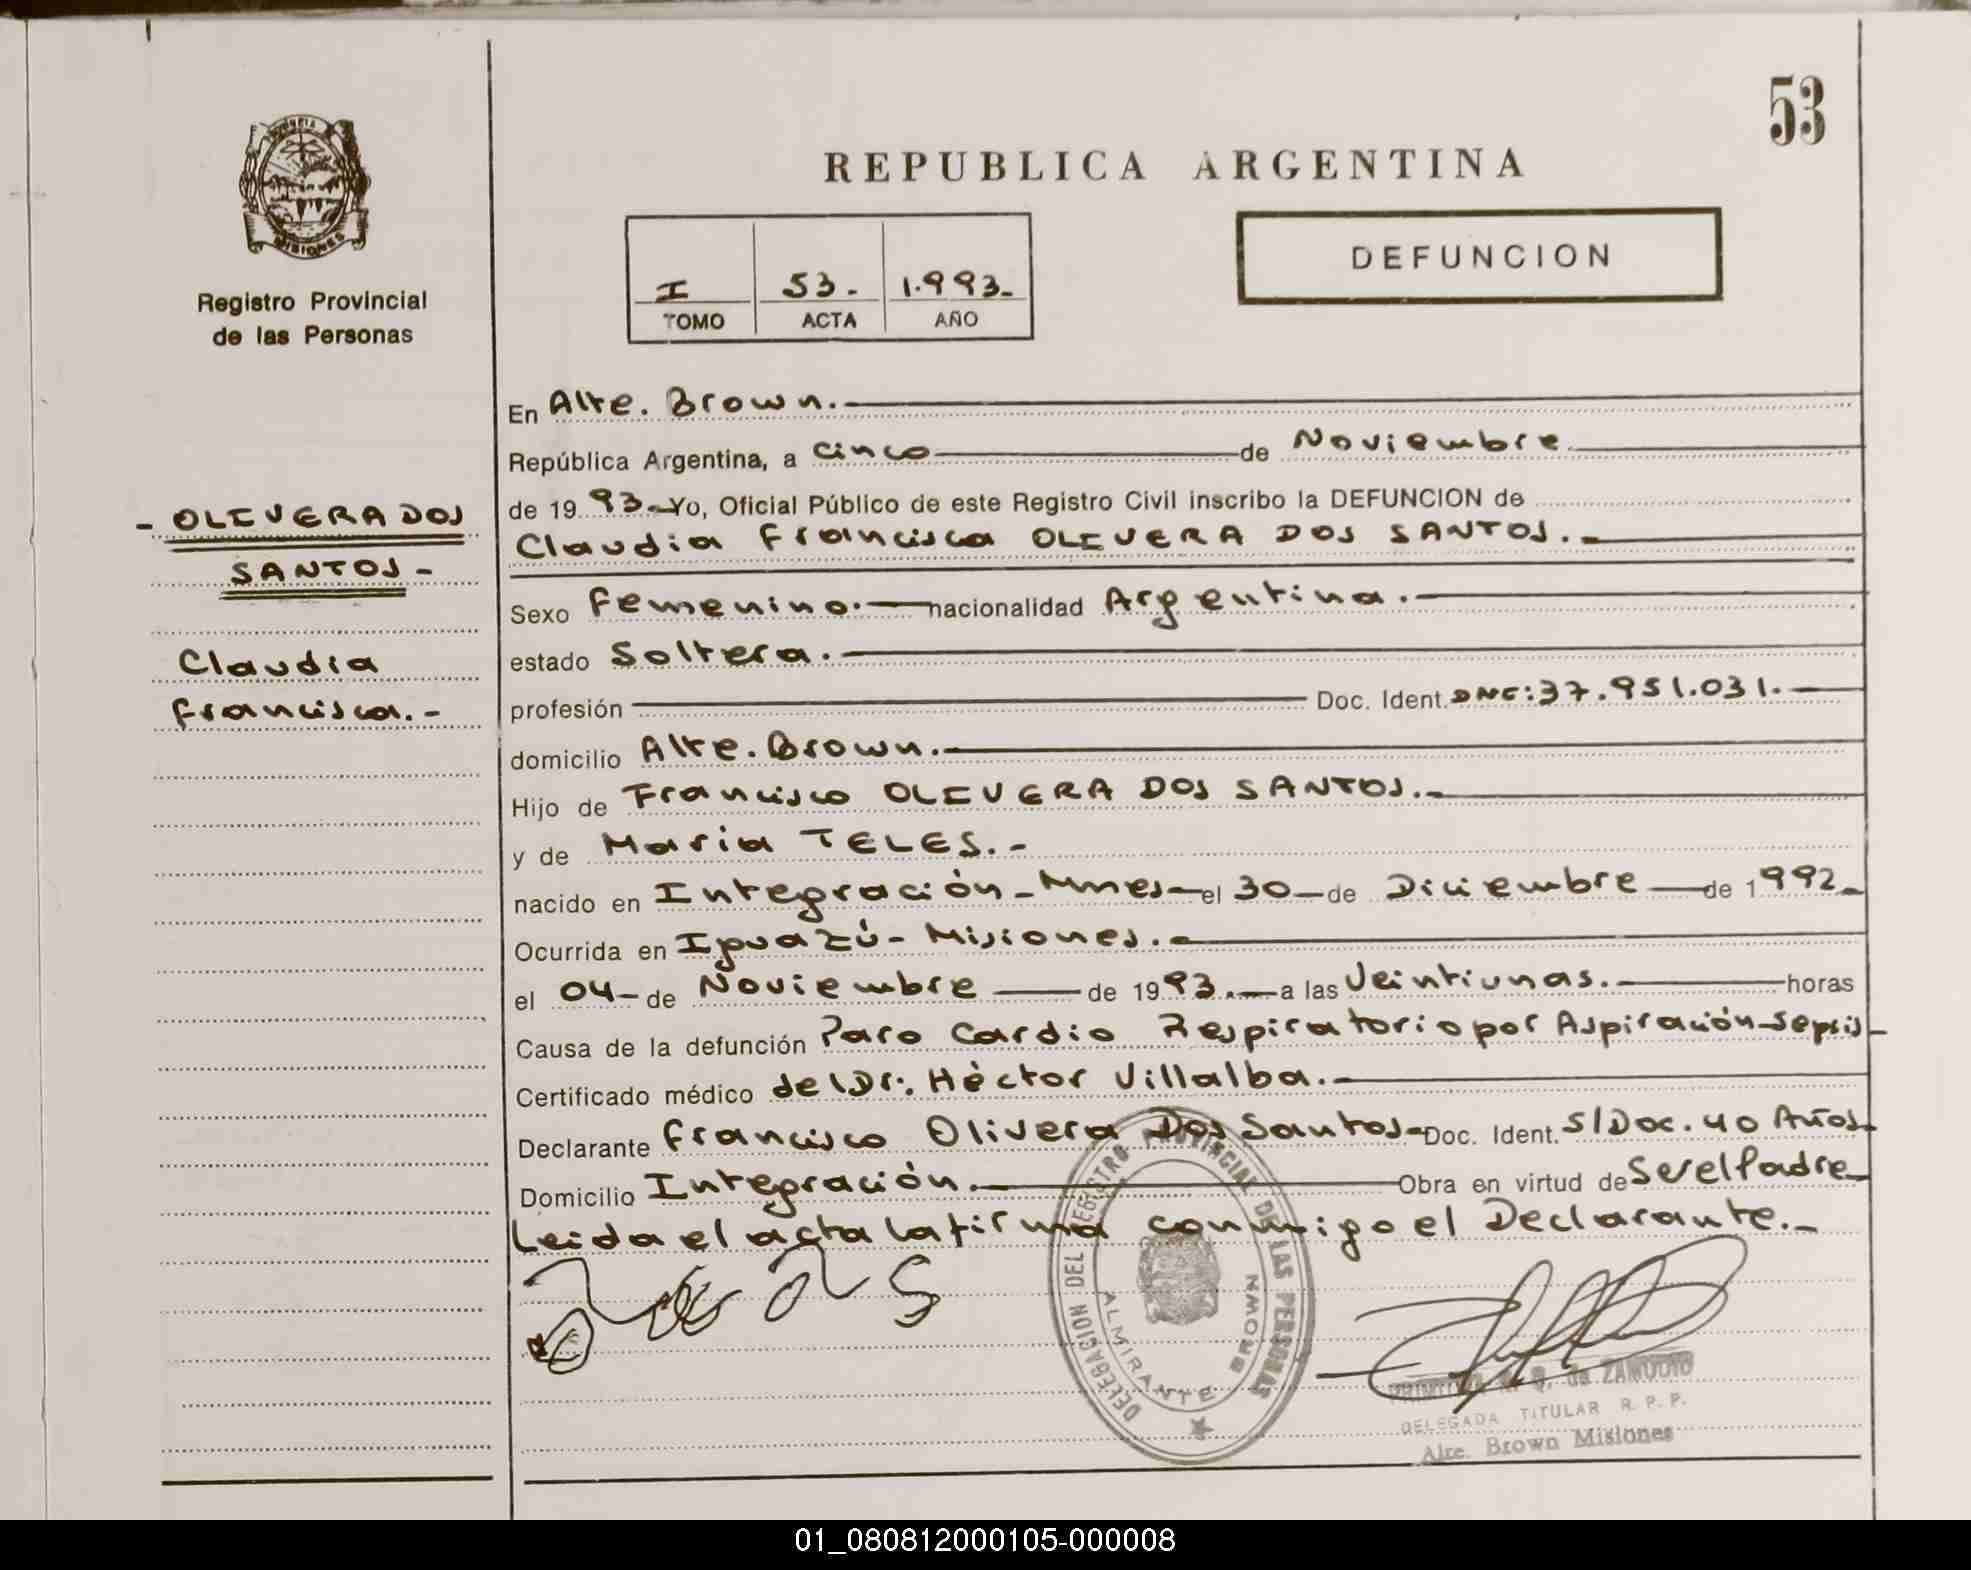 53
PROVINCIA
MISIONES
Registro Provincial
de las Personas
REPUBLICA ARGENTINA
I 53.- 1.993.-
TOMO ACTA AÑO
DEFUNCION
- OLIVERA DOS
SANTOS -
Claudia
Francisca.-
En Alte. Brown.-
República Argentina, a cinco de Noviembre
de 1993.- Yo, Oficial Público de este Registro Civil inscribo la DEFUNCION de
Claudia Francisca OLIVERA DOS SANTOS.-
Sexo Femenino.- nacionalidad Argentina.-
estado Soltera.-
profesión Doc. Ident. DNI: 37.951.031.-
domicilio Alte. Brown.-
Hijo de Francisco OLIVERA DOS SANTOS.-
y de Maria TELES.-
nacido en Integración - Mnes - el 30 - de Diciembre de 1992.-
Ocurrida en Iguazú - Misiones.-
el 04 - de Noviembre de 1993.- a las Veintiunas. horas
Causa de la defunción Paro Cardio Respiratorio por Aspiración-Sepsis-
Certificado médico del Dr: Héctor Villalba.-
Declarante Francisco Olivera Dos Santos - Doc. Ident. S/Doc. 40 Años-
Domicilio Integración.- Obra en virtud de Ser el Padre-
Leida el acta la firma conmigo el Declarante.-
DELEGACION DEL REGISTRO PROVINCIAL DE LAS PERSONAS
ALMIRANTE BROWN
Q. de ZAMUDIO
DELEGADA TITULAR R. P. P.
Alte. Brown Misiones
01_080812000105-000008